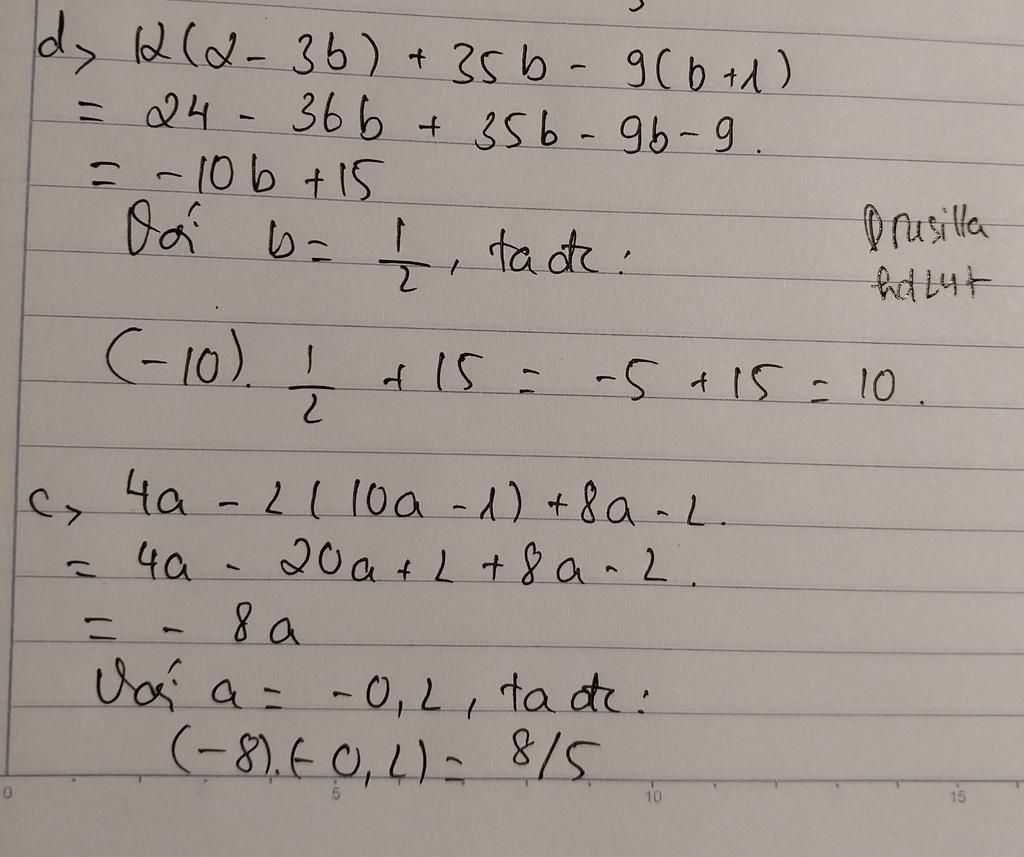 d> 12(2 - 3b) + 35b - 9(b+1)
= 24 - 36b + 35b - 9b - 9.
= -10b + 15
Với b = 1/2, ta đc:
Drusilla
(-10). 1/2 + 15 = -5 + 15 = 10.
c> 4a - 2(10a - 1) + 8a - 2.
= 4a - 20a + 2 + 8a - 2.
= - 8a
Với a = -0,2, ta đc:
(-8).(-0,2) = 8/5
0 5 10 15